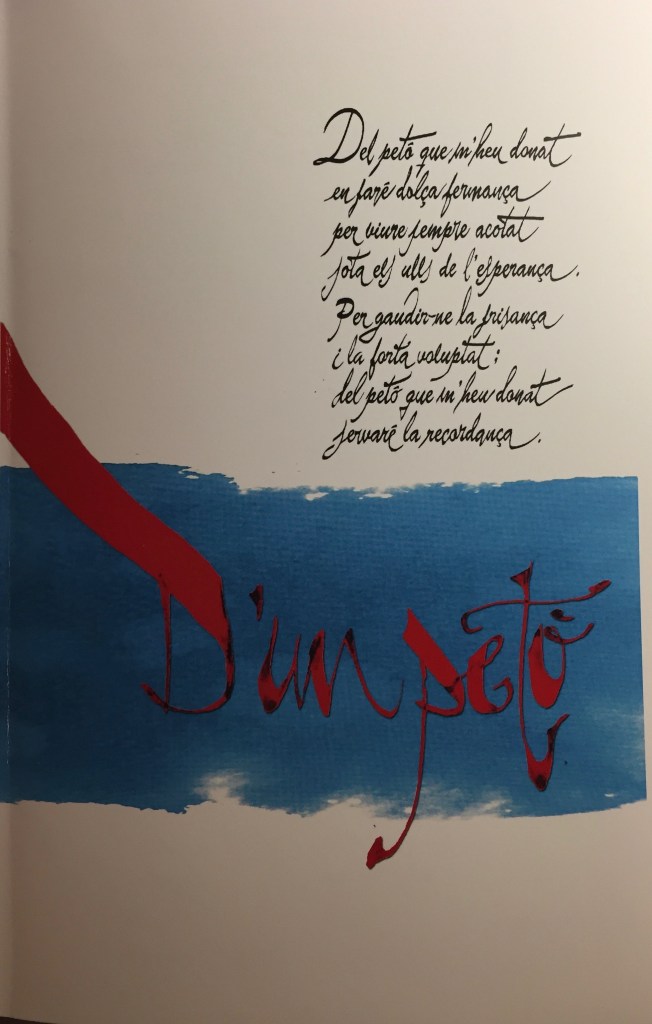 Del petó que m'heu donat
en faré dolça fermança
per viure sempre acotat
sota els ulls de l'esperança.
Per gaudir-ne la frisança
i la forta voluptat:
del petó que m'heu donat
servaré la recordança.
D'un petó